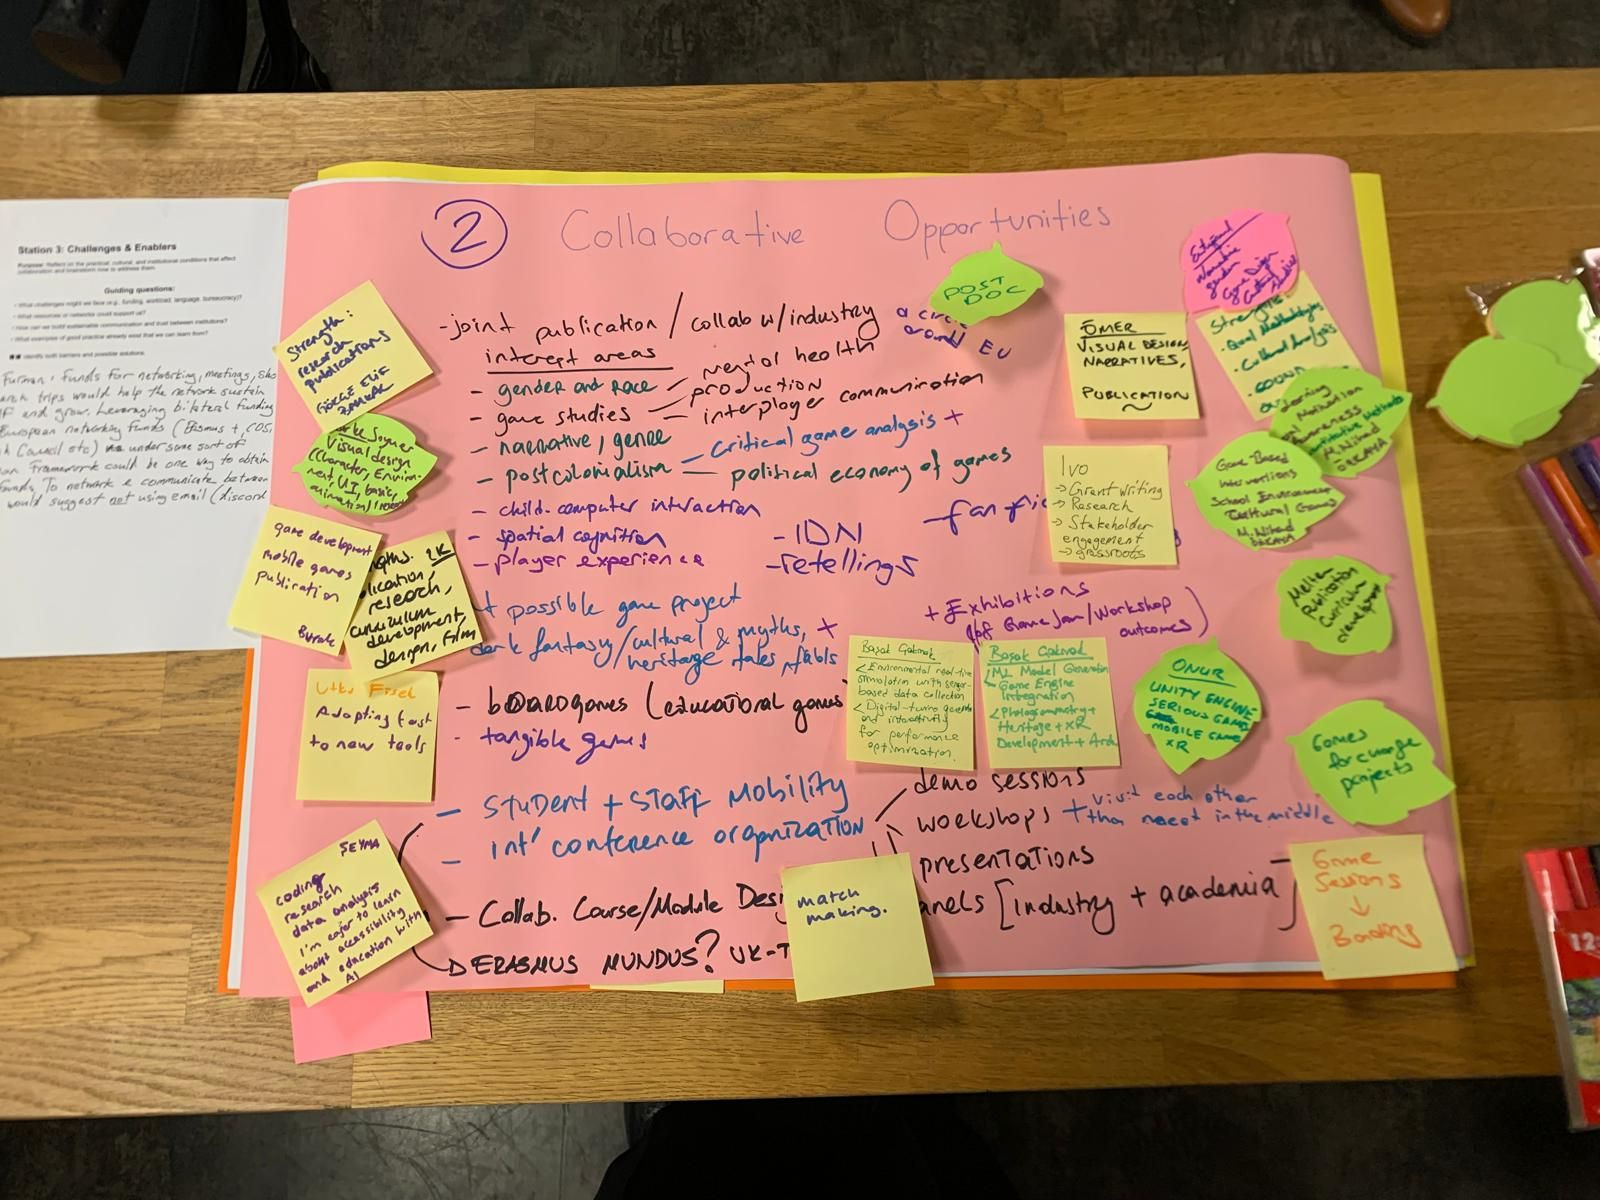 Station 3: Challenges & Enablers
Purpose: Reflect on the practical, cultural, and institutional conditions that affect
collaboration and brainstorm how to address them.
Guiding questions:
• What challenges might we face (e.g., funding, workload, language, bureaucracy)?
• What resources or networks could support us?
• How can we build sustainable communication and trust between institutions?
• What examples of good practice already exist that we can learn from?
Identify both barriers and possible solutions.
Funds for networking, meetings,
trips would help the network sustain
and grow. Leveraging bilateral funding
European networking funds (Erasmus +,
Council etc) under some sort of
Framework could be one way to obtain
funds. To network & communicate between
would suggest not using email (discord
2
Collaborative Opportunities
POST
DOC
- joint publication / collab w/industry
EU
interest areas
- gender and race
health
- game studies
production
interplayer communication
- narrative, genre
- postcolonialism
critical game analysis +
political economy of games
- child-computer interaction
- spatial cognition
- player experience
- IDN
- retellings
- fan
+ possible game project
dark fantasy/cultural & myths, +
heritage tales, fabls
+ Exhibitions
Game Jam/Workshop
outcomes)
- boardgames (educational games
- tangible games
- STUDENT + STAFF MOBILITY
- INT' CONFERENCE ORGANIZATION
demo sessions
WORKSHOPS + visit each other
meet in the middle
PRESENTATIONS
anels [industry + academia]
- Collab. Course/Module
ERASMUS MUNDUS? UK-T
Strength:
research
publications
Visual design
(Character, Environ-
ment, UI, basic
game development
mobile games
publication
Burak
research,
curriculum
development,
design, film
Adapting fast
to new tools
ŞEYMA
coding
research
data analysis
I'm eager to learn
about accessibility
and education with
AI
ÖMER
VISUAL DESIGN,
NARRATIVES,
PUBLICATION
Strengths:
Cultural Analysis
Ivo
→ Grant Writing
→ Research
→ Stakeholder
engagement
→ grassroots
Motivation
Awareness
Game Based
Interventions
School Environment
Cultural Games
M. Nihad
Publication
Curriculum
development
Başak
Environmental real-time
simulation with sensor-
based data collection
for performance
optimization.
Başak
ML Model Generation
Game Engine
Integration
Photogrammetry +
Heritage + XR
Development +
ONUR
UNITY ENGINE
SERIOUS GAME
MOBILE GAME
XR
Games
for change
projects
match
making.
Game
Sessions
↓
Bonding
12